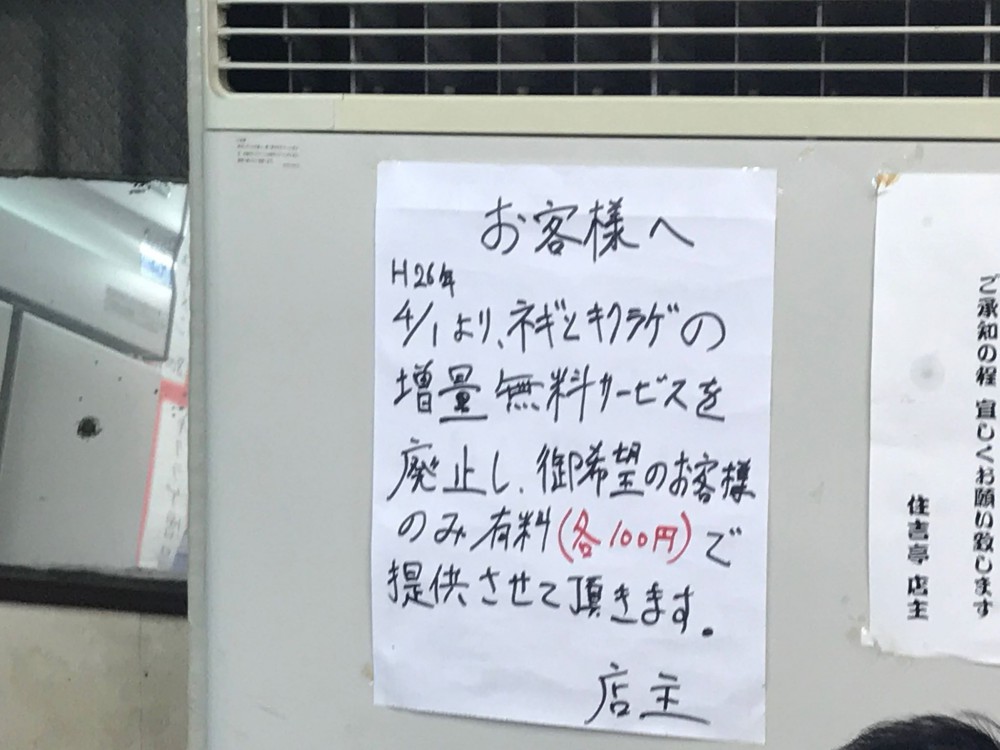 お客様へ
H26年
4/1より、ネギとキクラゲの
増量無料サービスを
廃止し、御希望のお客様
のみ有料(各100円)で
提供させて頂きます。
店主
ご承知の程 宜しくお願い致します
住吉亭 店主